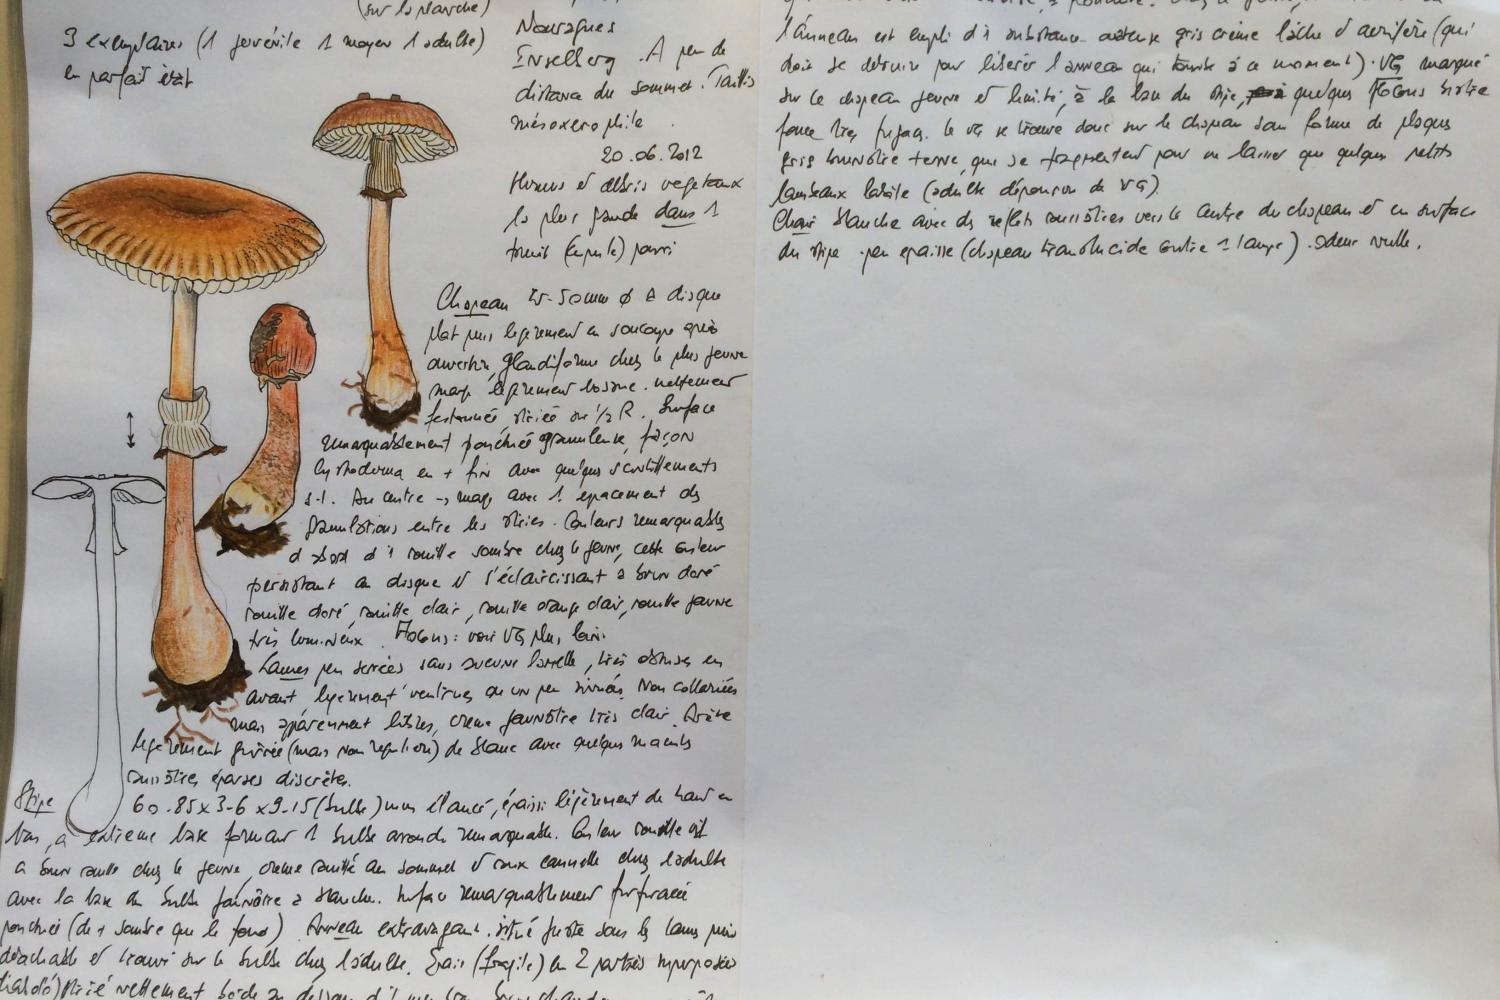 (sur la planche)
3 exemplaires (1 juvénile 1 moyen 1 adulte)
en parfait état
Nouragues
Inselberg. A peu de
distance du sommet. Taillis
mésoxérophile
20.06.2012
Humus et débris végétaux
la plus grande dans 1
pourri
Chapeau 50mm ø à disque
plat puis légèrement en soucoupe après
ouverture, glandiforme chez le plus jeune
marge légèrement nettement
striée sur 1/2 R. Surface
remarquablement ponctuée granuleuse, façon
cystoderma en + fin avec quelques
Au centre → marge avec 1 espacement des
granulations entre les stries. Couleurs remarquables
d'abord d'1 rouille sombre chez le jeune, cette couleur
persistant au disque et s'éclaircissant à brun doré
rouille doré, rouille clair, rouille orange clair, rouille jaune
très lumineux. Flocons: voir VG plus loin.
Lames peu serrées sans aucune lamelle, très obtuses en
avant légèrement ventrues ou un peu sinuées. Non collariées
mais apparemment libres, crème jaunâtre très clair. Arête
légèrement givrée (mais non régulier) de blanc avec quelques
roussâtres éparses discrètes.
Stipe 60-85x3-6x9-15 (bulbe) mm élancé, épaissi légèrement de haut en
bas, à extrême base formant 1 bulbe arrondi remarquable. Couleur rouille
à brun rouille chez le jeune, crème au sommet et roux cannelle chez l'adulte
avec la base du bulbe jaunâtre à blanche. Surface remarquablement furfuracée
ponctuée (de + sombre que le fond). Anneau extravagant. situé juste sous les lames puis
détachable et trouvé sur le bulbe chez l'adulte. Epais (fragile) en 2 parties superposées
strié nettement
l'anneau est empli d'1 substance gris crème lâche et aérifère (qui
doit se détruire pour libérer l'anneau qui tombe à ce moment). VG marqué
sur le chapeau jeune et limité, à la base du stipe, à quelques flocons bistre
foncé très fugaces. Le VG se trouve donc sur le chapeau sous forme de plaques
gris brunâtre terne, qui se fragmentent pour ne laisser que quelques petits
lambeaux labiles (adulte dépourvu de VG).
Chair blanche avec des reflets roussâtres vers le centre du chapeau et en surface
du stipe peu épaisse (chapeau translucide contre 1 lampe). Odeur nulle.